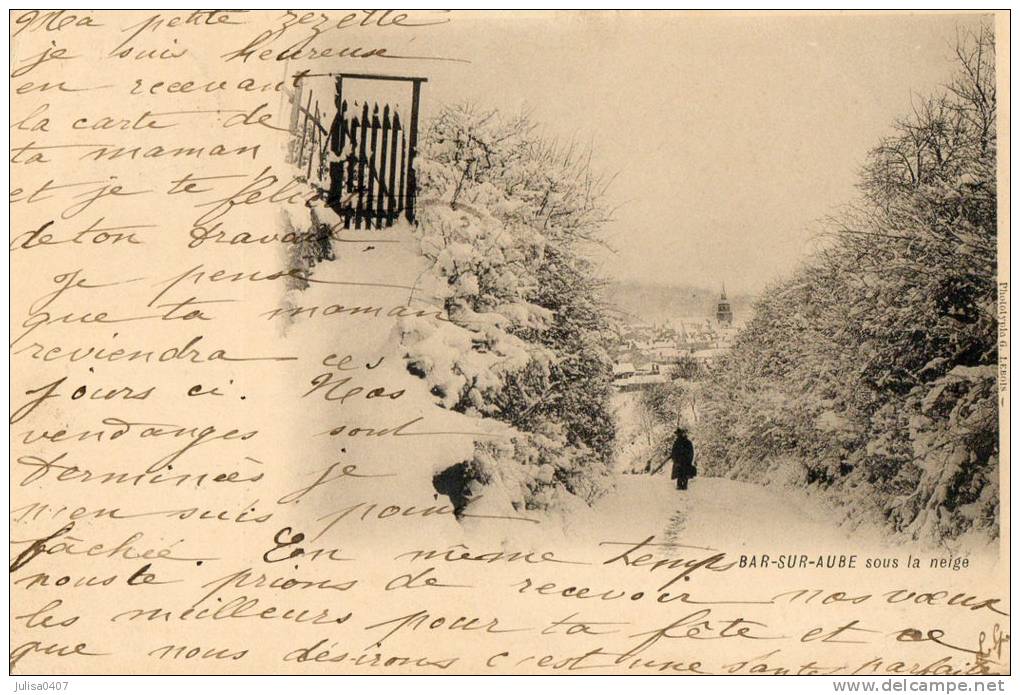 Ma petite zezette
je suis heureuse
en recevant
la carte de
ta maman
et je te félici
de ton travail
Je pense
que ta maman
reviendra ces
jours ci. Nos
vendanges sont
terminées je
n'en suis point
fâchée. En même temps
nouste prions de recevoir nos vœux
les meilleurs pour ta fête et ce
que nous désirons c'est une santé parfaite
BAR-SUR-AUBE sous la neige
Phototypie G. LEBOIS
julisa0407
www.delcampe.net